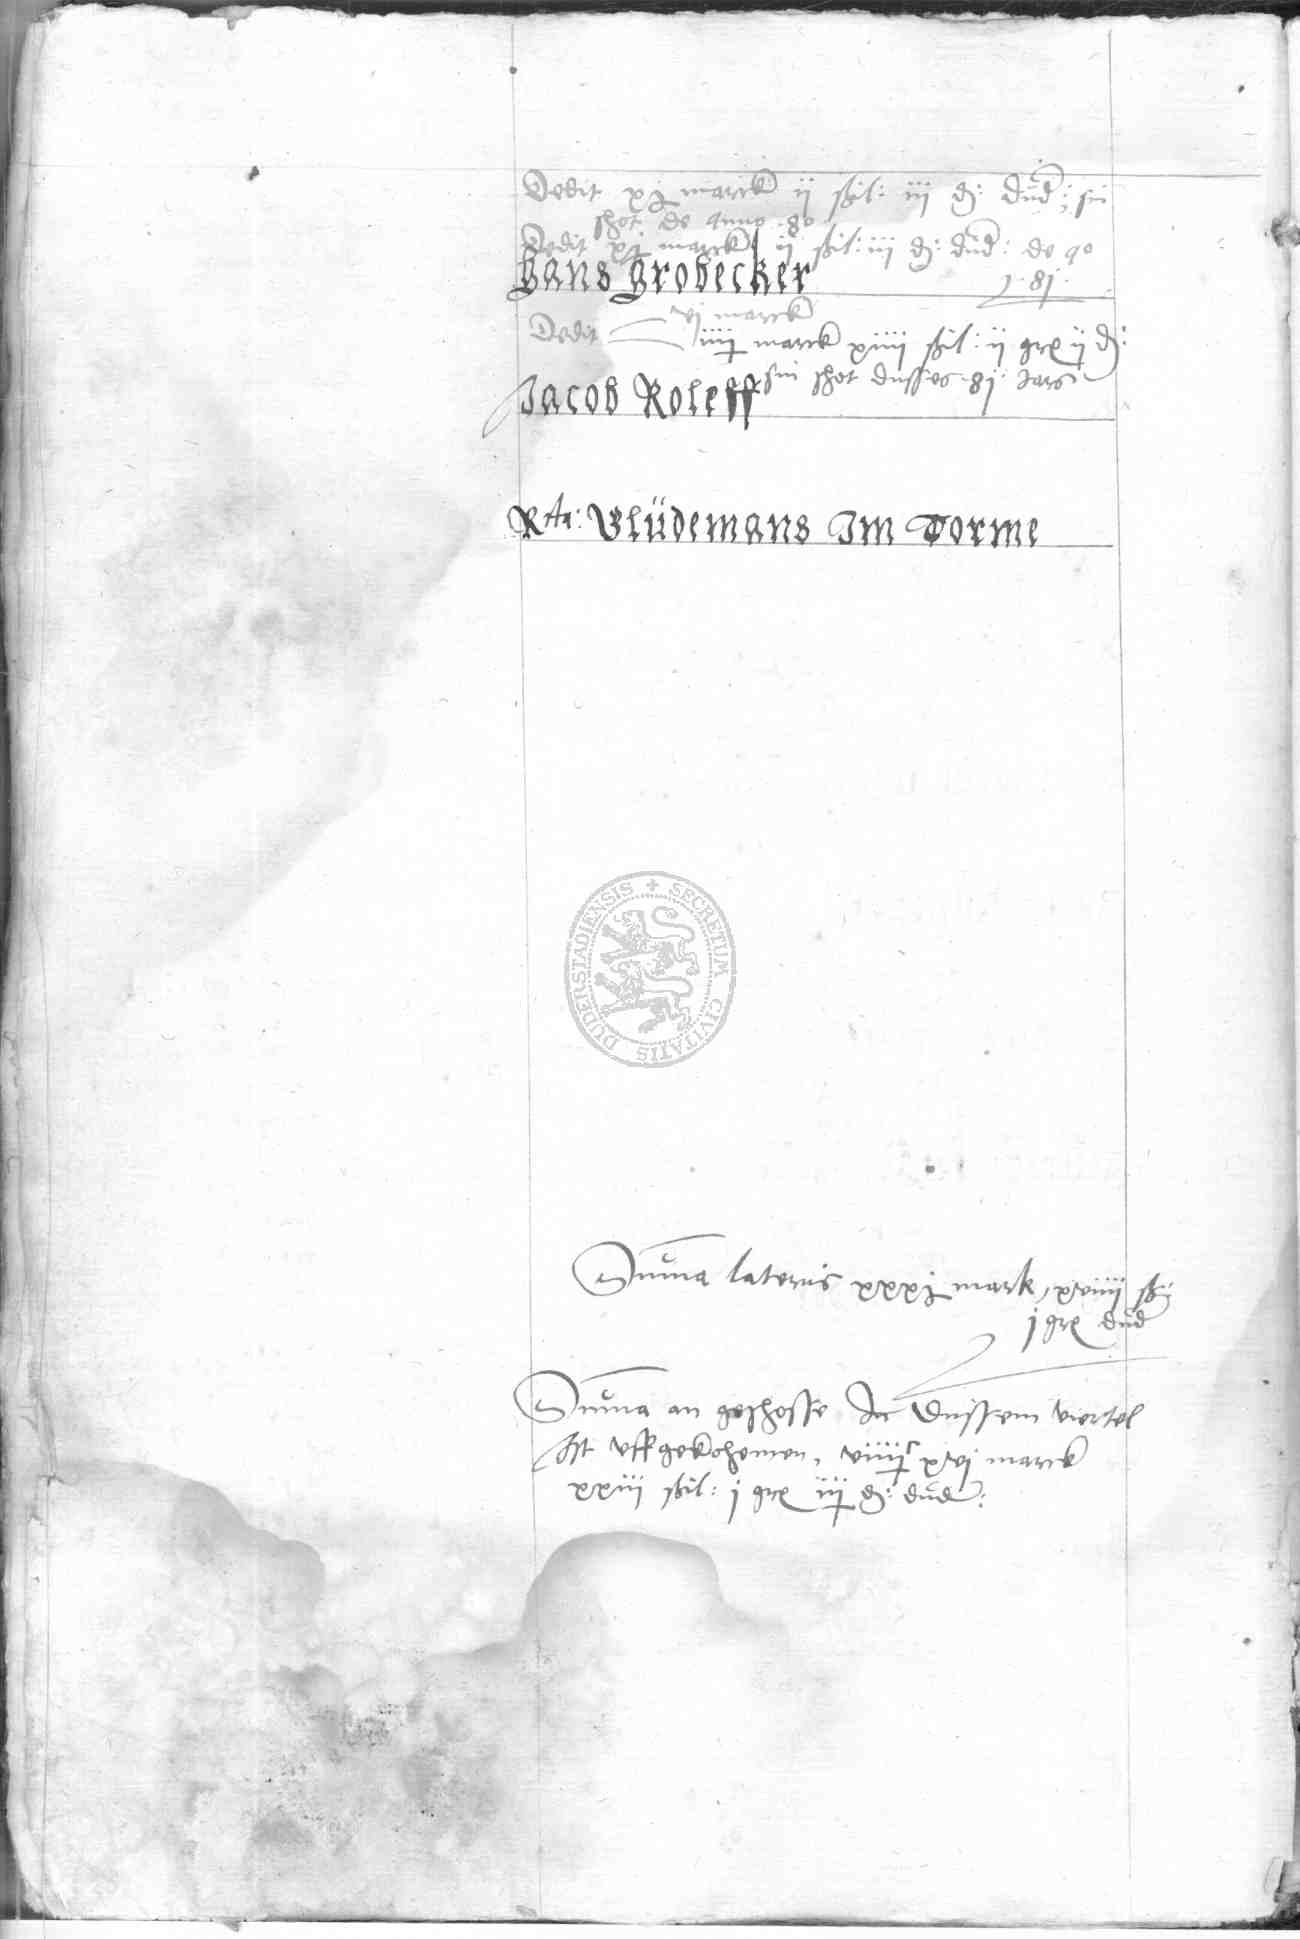 Dedit xj marck ij ßil: iij d: dud: sin
shot de anno 80
Dedit xj marck ij ßil: iij d: dud: de ao
81
Hans Grobecker
vj marck
Dedit iiij marck xiiij ßil: ij gr ij d:
sin shot dusses 81 Jars
Jacob Roleff
Rta: Vlüdemans Im Torme
DUDERSTADIENSIS + SECRETUM CIVITATIS
Suma lateris xxxj mark, xviiij ß
j gr dud
Suma an geshosse In dussem viertel
Ist vffgekohemen, viiijc xvj marck
xxiij ßil: j gr iij d: dud: